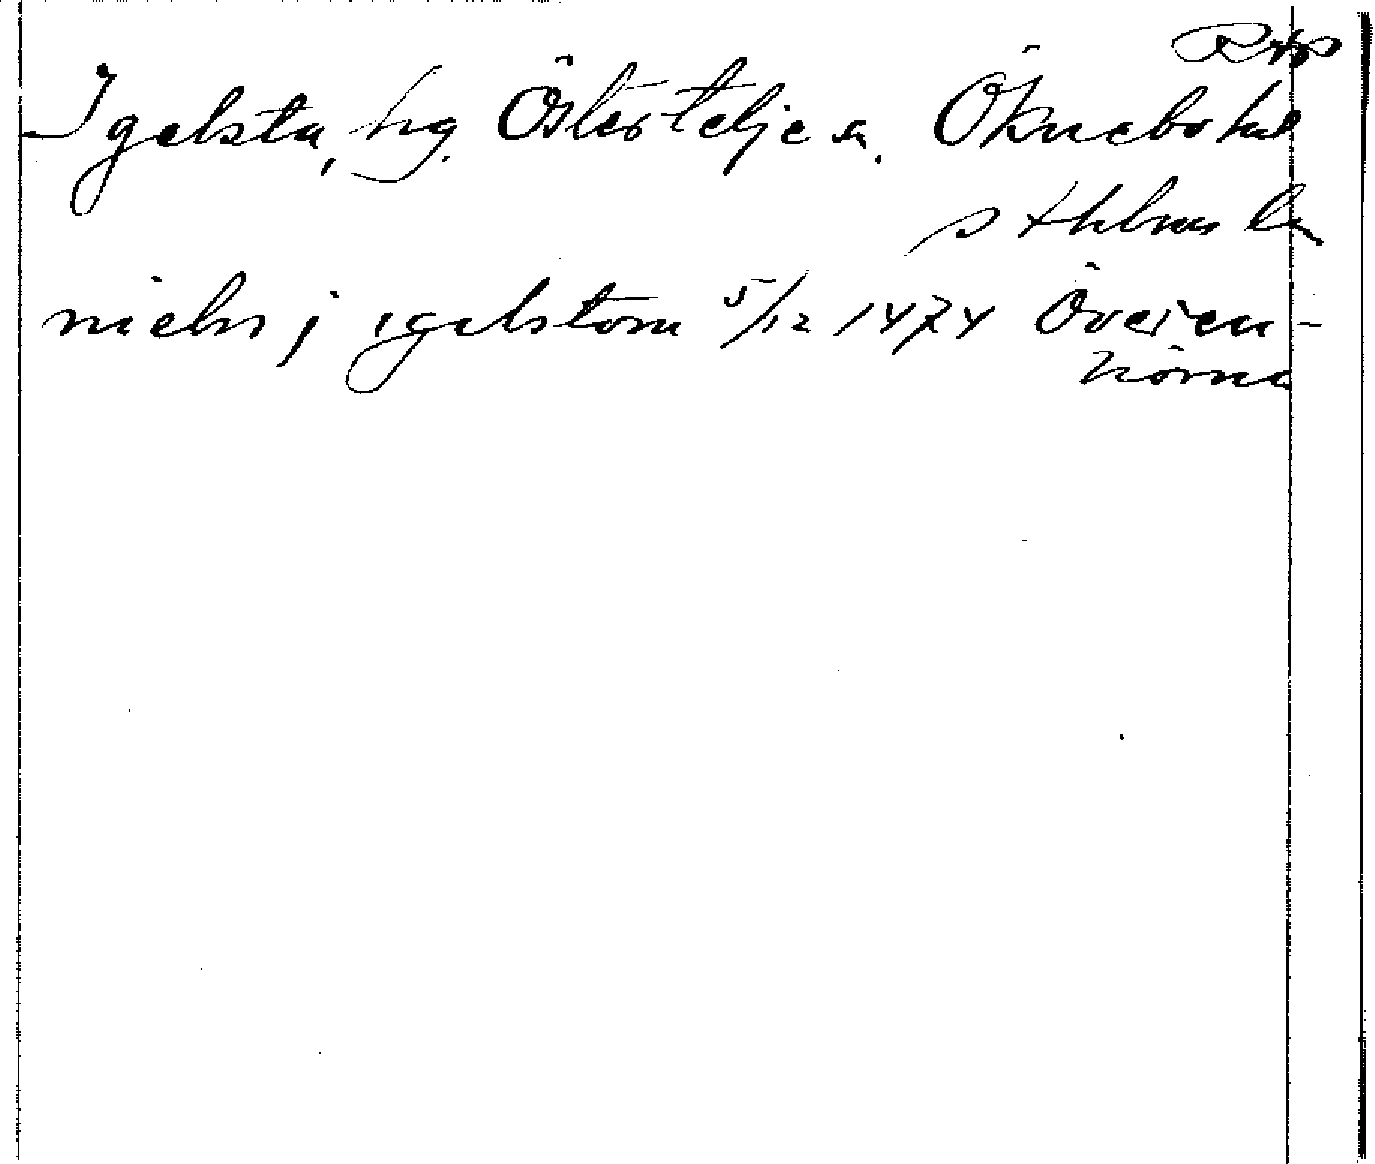 Rap
Igelsta, hg. Östertelje sn. Öknebo hd
Sthlms län
niels j igelstom 5/12 1474 Överen-
hörna